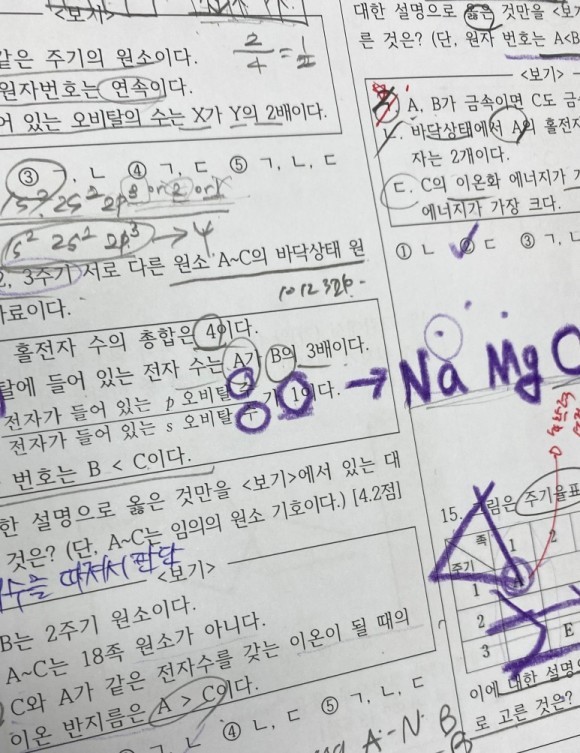 <보기>
같은 주기의 원소이다.
2/4 = 1/2
원자번호는 연속이다.
어 있는 오비탈의 수는 X가 Y의 2배이다.
③ ㄱ, ㄴ ④ ㄱ, ㄷ ⑤ ㄱ, ㄴ, ㄷ
1s² 2s² 2p³ or 2 or
s² 2s² 2p³ → 4
2, 3주기 서로 다른 원소 A~C의 바닥상태 원
자료이다.
홀전자 수의 총합은 4이다.
탈에 들어 있는 전자 수는 A가 B의 3배이다.
전자가 들어 있는 p 오비탈 수
전자가 들어 있는 s 오비탈 수 가 1이다.
번호는 B < C이다.
한 설명으로 옳은 것만을 <보기>에서 있는 대
것은? (단, A~C는 임의의 원소 기호이다.) [4.2점]
수를 따져서 판단
<보기>
B는 2주기 원소이다.
A~C는 18족 원소가 아니다.
C와 A가 같은 전자수를 갖는 이온이 될 때의
이온 반지름은 A > C이다.
④ ㄴ, ㄷ ⑤ ㄱ, ㄴ, ㄷ
A-N B
대한 설명으로 옳은 것만을 <보기
른 것은? (단, 원자 번호는 A<B
<보기>
ㄱ. A, B가 금속이면 C도 금
ㄴ. 바닥상태에서 A의 홀전자
자는 2개이다.
ㄷ. C의 이온화 에너지가 가
에너지가 가장 크다.
① ㄴ ② ㄷ ③ ㄱ, ㄴ
→ Na Mg
15. 그림은 주기율표
족 1 2
주기
1
2
3 E
이에 대한 설명으
로 고른 것은?